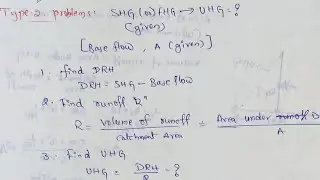 Type-2 problems: SHG (or) FHG → UHG = ?
(given)
[Base flow, A (given)]
1. find DRH
DRH = SHG - Base flow
2. Find runoff R"
R = Volume of runoff / catchment Area = Area under runoff D / A
3. Find UHG
UHG = DRH / R = ?